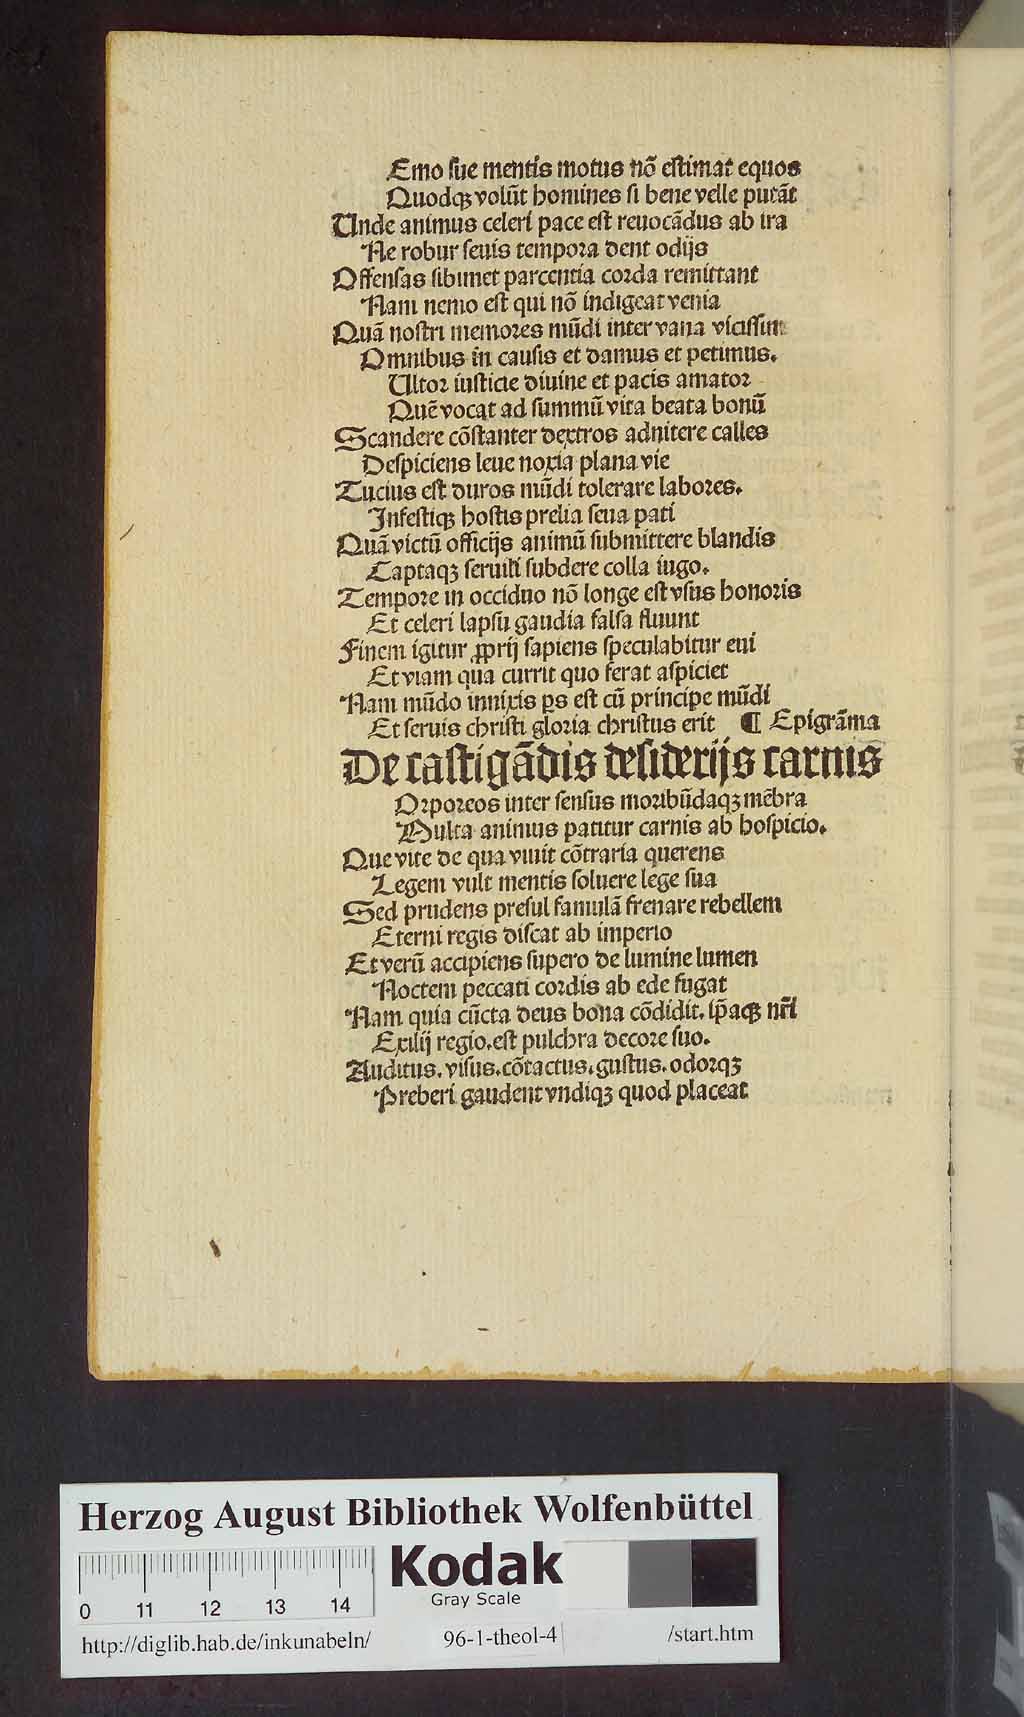 Emo sue mentis motus nō estimat equos
Quodqꝫ volūt homines si bene velle putāt
Unde animus celeri pace est reuocādus ab ira
Ne robur seuis tempora dent odijs
Offensas sibimet parcentia corda remittant
Nam nemo est qui nō indigeat venia
Quā nostri memores mūdi inter vana vicissim
Omnibus in causis et damus et petimus.
Ultor iusticie diuine et pacis amator
Quē vocat ad summū vita beata bonū
Scandere cōstanter dextros adnitere calles
Despiciens leue noxia plana vie
Tucius est duros mūdi tolerare labores.
Infestiqꝫ hostis prelia seua pati
Quā victū officijs animū submittere blandis
Captaqꝫ seruili subdere colla iugo.
Tempore in occiduo nō longe est vsus honoris
Et celeri lapsu gaudia falsa fluunt
Finem igitur ꝓprij sapiens speculabitur eui
Et viam qua currit quo ferat aspiciet
Nam mūdo innixis ps est cū principe mūdi
Et seruis christi gloria christus erit ¶ Epigrāma
De castigādis desiderijs carnis
Orporeos inter sensus moribūdaqꝫ mēbra
Multa animus patitur carnis ab hospicio.
Que vite de qua viuit cōtraria querens
Legem vult mentis soluere lege sua
Sed prudens presul famulā frenare rebellem
Eterni regis discat ab imperio
Et verū accipiens supero de lumine lumen
Noctem peccati cordis ab ede fugat
Nam quia cūcta deus bona cōdidit. ip̄aqꝫ nr̄i
Exilij regio. est pulchra decore suo.
Auditus. visus. cōtactus. gustus. odorqꝫ
Preberi gaudent vndiqꝫ quod placeat
Herzog August Bibliothek Wolfenbüttel
Kodak
Gray Scale
0 11 12 13 14
http://diglib.hab.de/inkunabeln/ 96-1-theol-4 /start.htm